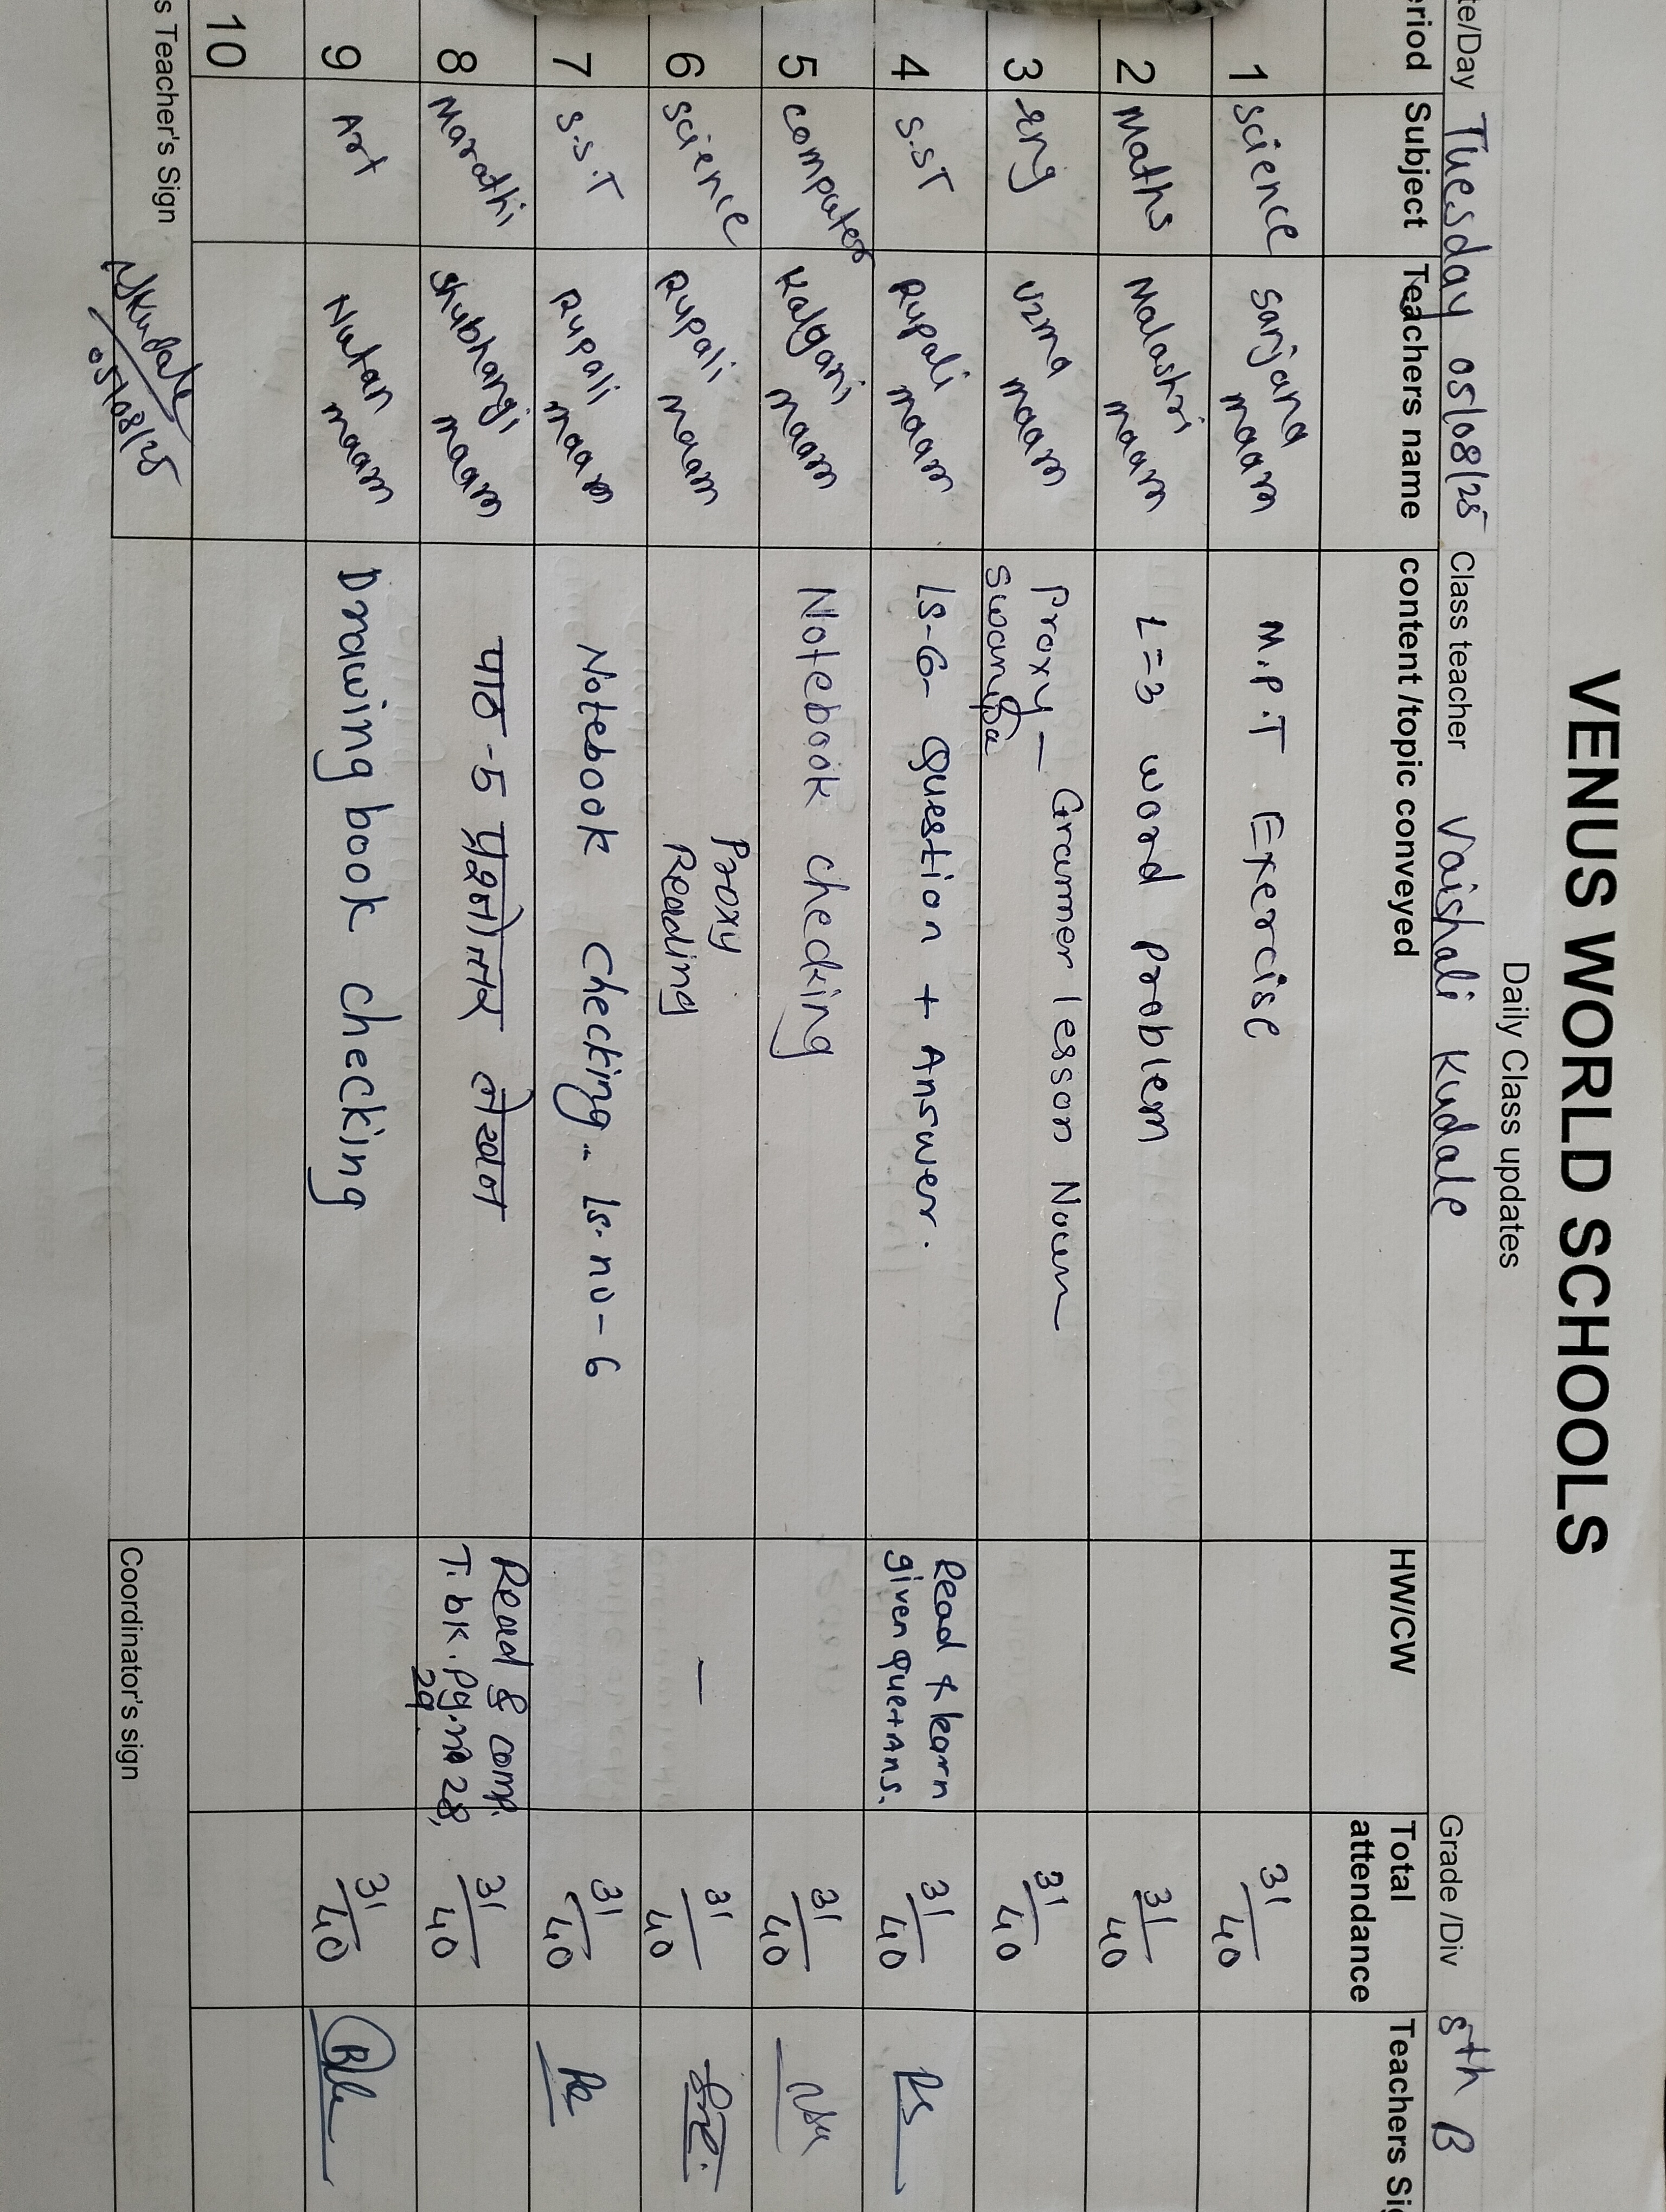 VENUS WORLD SCHOOLS
Daily Class updates
te/Day Tuesday 05/08/25 Class teacher Vaishali Kudale Grade /Div 8th B
eriod Subject Teachers name content /topic conveyed HW/CW Total attendance Teachers Si
1 science Sanjana maam M.P.T Exercise 31/40
2 Maths Malashri maam L=3 word problem 31/40
3 eng Uzma maam Proxy - Grammer lesson Noun 31/40
4 S.ST Rupali maam Ls-6- Question + Answer. Read & learn given que+Ans. 31/40
5 computer Kalyani maam Notebook checking 31/40
6 Science Rupali maam Proxy Reading - 31/40
7 S.S.T Rupali maam Notebook Checking - Ls. no - 6 31/40
8 Marathi Shubhangi maam पाठ -5 प्रश्नोत्तर लेखन Read & comp. T.bk. Pg.no 28, 29. 31/40
9 Art Nutan maam Drawing book checking 31/40
10
s Teacher's Sign 05/08/25 Coordinator's sign